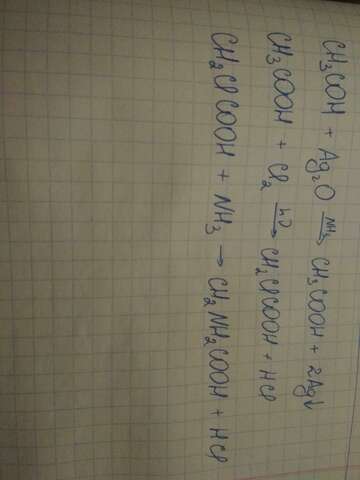 CH₃COH + Ag₂O →(NH₃) CH₃COOH + 2Ag↓
CH₃COOH + Cl₂ →(hν) CH₂ClCOOH + HCl
CH₂ClCOOH + NH₃ → CH₂NH₂COOH + HCl